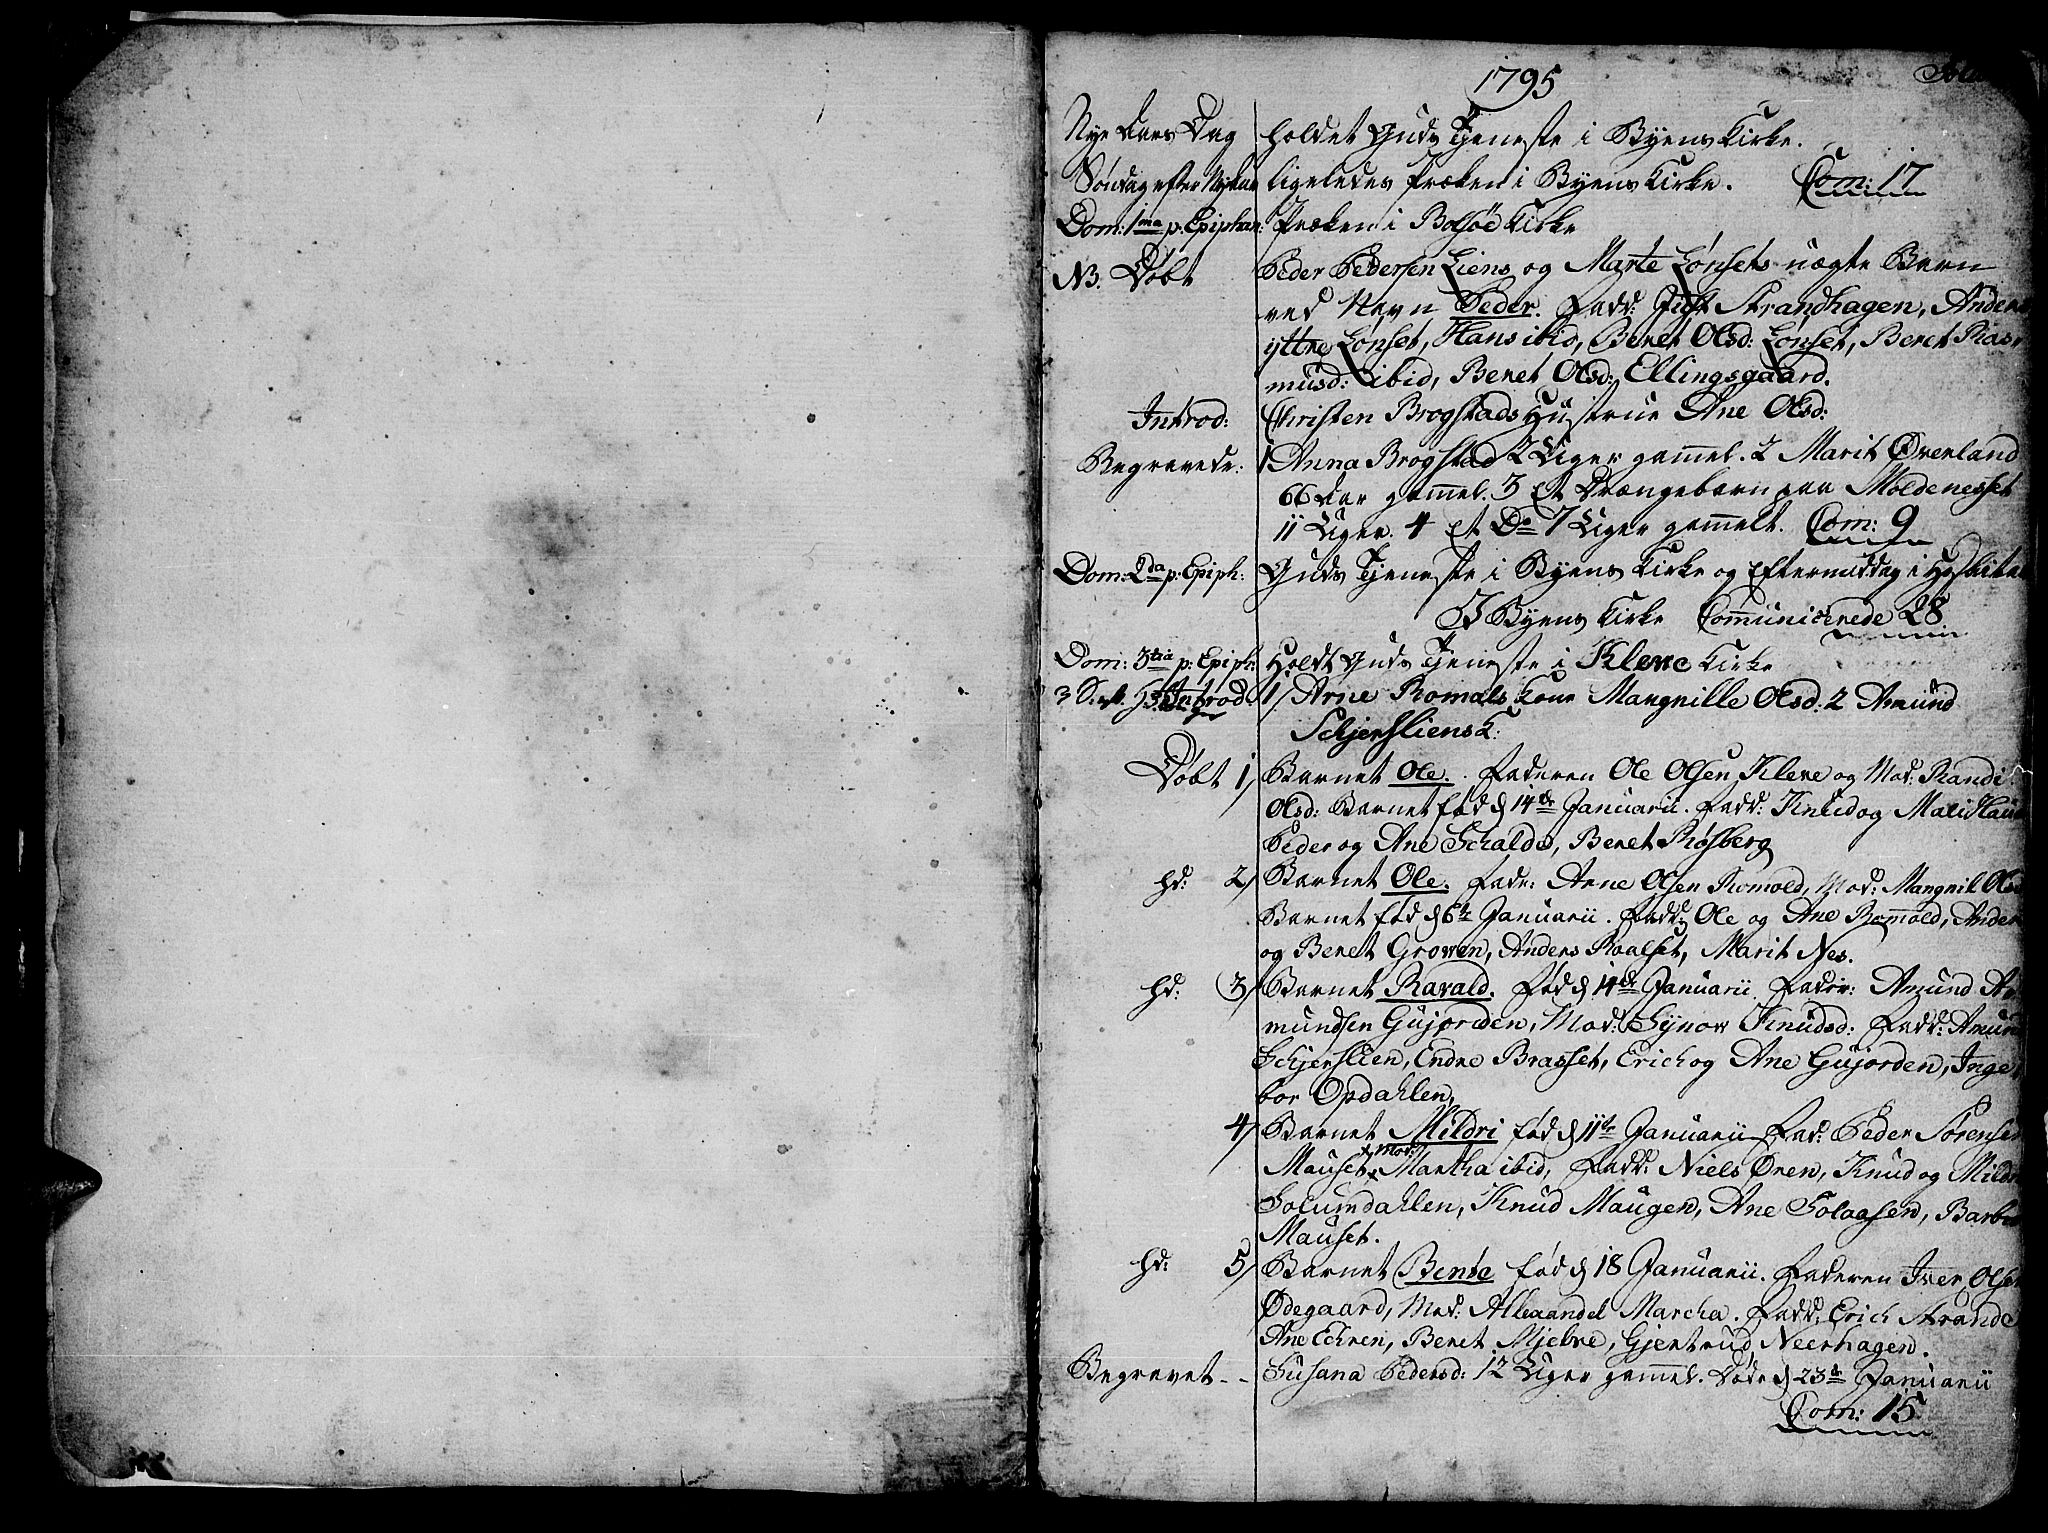 1795
Nye Aars Dag holdet Guds Tjeneste i Byens Kirke.
Søndag efter Nyeaar ligeledes Præken i Byens Kirke. Com: 17
Dom: 1ma p: Epiphan: Præken i Bolsöe Kirke
NB. Døbt Peder Pedersen Liens og Marte Lønsets uægte Barn
ved Navn Peder. Fadd: Strandhagen, Anders
yttre Lønset, Hans ibid, Beret Olsd: Lønset, Beret Ras-
musd: ibid, Beret Olsd: Ellingsgaard.
Introd: Christen Brogstads Hustrue Ane Olsd:
Begravede: 1 Anna Brogstad 2 Uger gammel. 2 Marit Øverland
66 Aar gammel. 3 Et Drængebarn paa Moldenesset
11 Uger. 4 Et Do 7 Uger gammelt. Com: 9
Dom: 2da p: Epiph: Guds Tjeneste i Byens Kirke og Eftermiddag i Hospitalet
I Byens Kirke Communicerede 28
Dom: 3tia p: Epiph: Holdt Guds Tjeneste i Kleve Kirke
Introd 1/ Arne Romals Kone Mangnille Olsd: 2 Amund
Schjersliens K:
Døbt 1/ Barnet Ole. Faderen Ole Olsen Kleve og Mod: Randi
Olsd: Barnet fød d 14de Januarii. Fadd: Knud og Malid
Peder og Ane Schalde, Beret Røsberg
hd: 2/ Barnet Ole. Fader: Arne Olsen Romold, Mod: Mangnil Olsd
Barnet fød d 6te Januarii. Fadd: Ole og Ane Romold, Anders
og Beret Groven, Anders Roalset, Marit Nes.
hd: 3/ Barnet Ravald. fød d 14de Januarii Fader: Amund A-
mundsen Gujorden, Mod: Synov Knudsd: Fadd: Amund
Schjerslien, Endre Brasset, Erich og Ane Gujorden, Inge-
bor Opdahlen,
4/ Barnet Mildri fød d 11te Januarii Fad: Peder Sørensen
Mauset, Mod: Martha ibid, Fadd: Niels Ören, Knud og Mildri
Solumdahlen, Knud Maugen, Ane Solaasen, Barbro
Mauset.
hd: 5/ Barnet Bente fød d 18 Januarii. Faderen Iver Olsen
Ødegaard, Mod: Marcha. Fadd: Erich Strande
Ane Echren, Beret Mjelve, Gjertrud Neerhagen.
Begravet - - Susana Pedersd: 12 Uger gammel. Døde d 23de Januarii
Com: 15